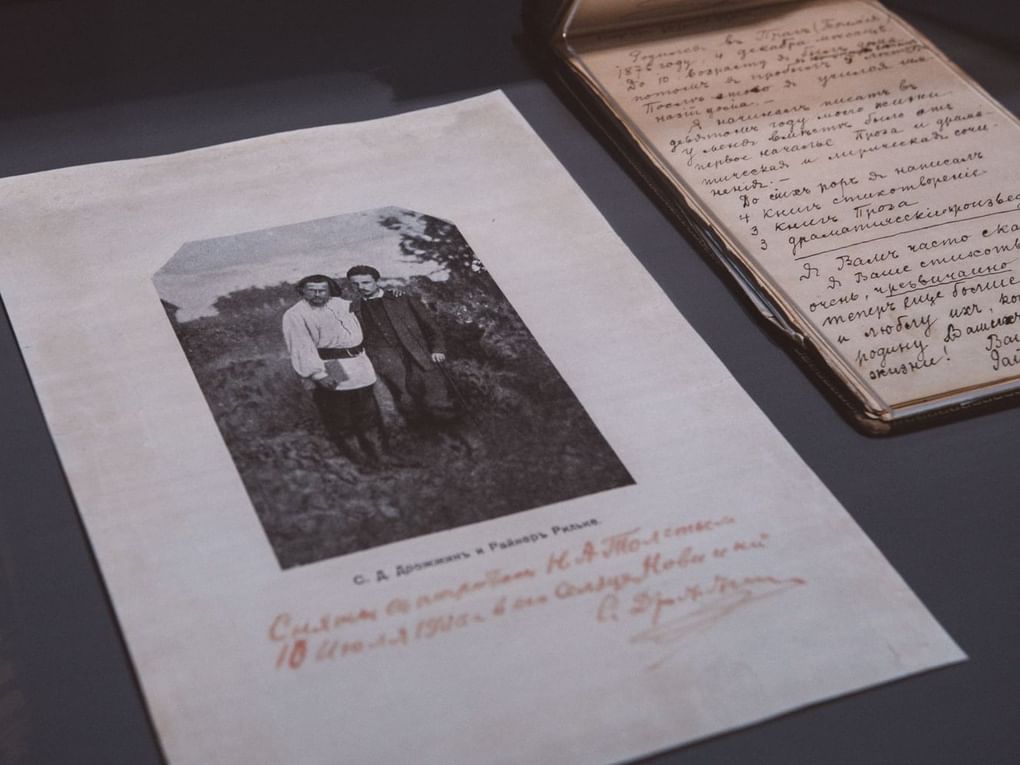 С. Д. Дрожжинъ и Райнеръ Рильке.
Сняты Н А Толстым
10 Июля 1900 г. в Новинки
С. Дрожжин
Родился въ Прагѣ (Богемія)
1875 году 4 декабря мѣсяца
До 10 возраста я былъ дома
потомъ я пробылъ 5
Послѣ я учился на-
Я начиналъ писать въ
девятомъ году моего жизни
у меня вмѣстѣ было отъ
первое начальѣ Проза и драма-
тическая и лирическая сочи-
ненія. —
До сихъ поръ я написалъ
4 книги стихотвореніе
3 книги Проза
3 драматическіе произвед
Я Вамъ часто ска
я Ваше стихотв
очень, чрезвычайно
теперь еще больше
и люблю ихъ, ко
родину Вашихъ
жизни! Ва
Рай